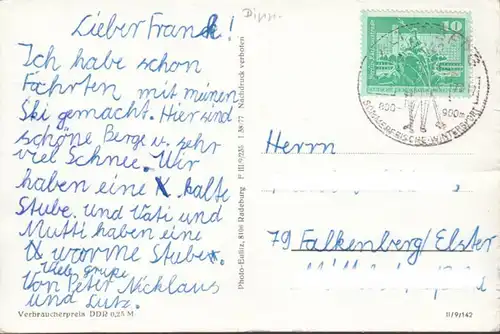 Lieber Frank!
Ich habe schon
Fährten mit meinen
Ski gemacht. Hier sind
schöne Berge u. sehr
viel Schnee. Wir
haben eine kalte
Stube. Und Vati und
Mutti haben eine
warme Stube.
Viele grüße
Von Peter Nicklaus
und Lutz.
Verbraucherpreis DDR 0,25 M
Photo-Eulitz, 8106 Radeburg P III/9/235 1 38 77 Nachdruck verboten
Dipp.
10
800-
900m
SOMMERFRISCHE-WINTERSPORT
Herrn
79 Falkenberg/Elster
II/9/142